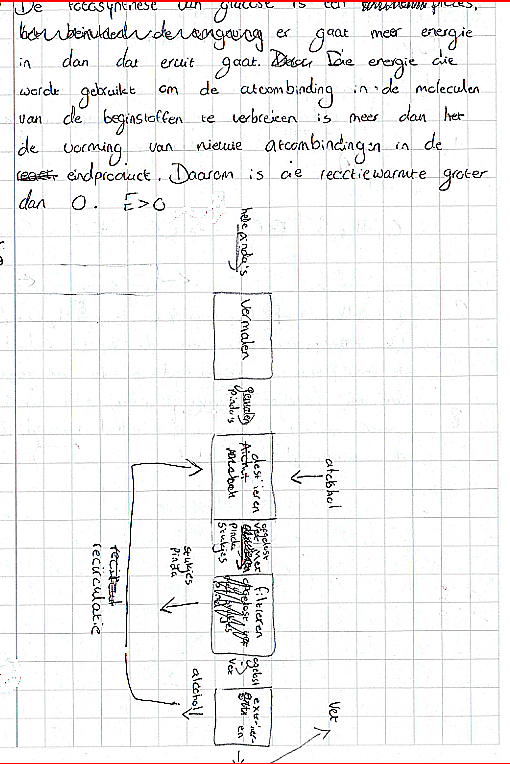 De fotosynthese van glucose is een proces,
er gaat meer energie
in dan dat eruit gaat. Die energie die
wordt gebruikt om de atoombinding in de moleculen
van de beginstoffen te verbreken is meer dan het
de vorming van nieuwe atoombindingen in de
eindproduct. Daarom is de reactiewarmte groter
dan 0. E>0
hele pinda's
Vermalen
gemalen pinda's
alcohol
opgelost vet met pinda stukjes
filtreren
stukjes pinda
opgelost vet
alcohol
vet
recirculatie